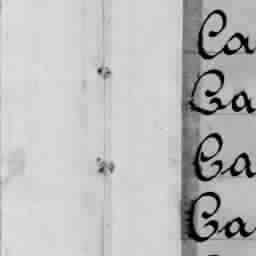 Ca
Ca
Ca
Ca